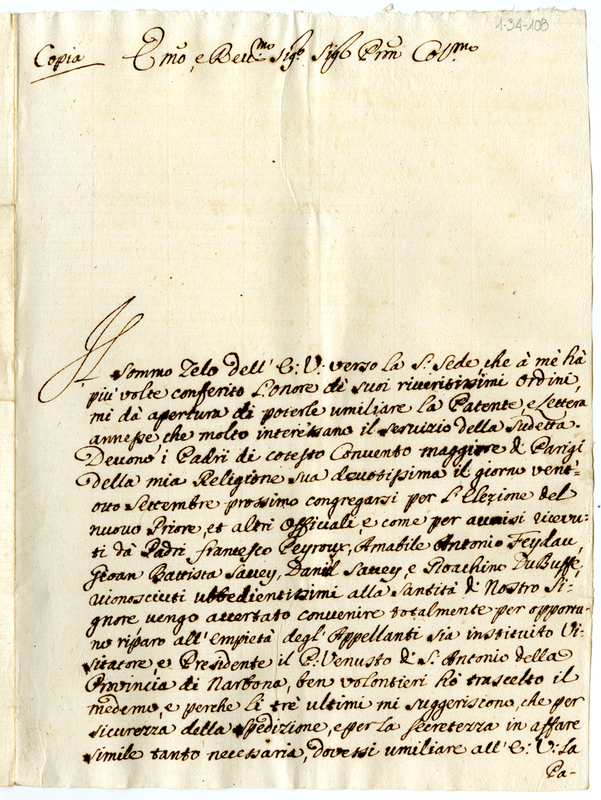 1-34-108
Copia
Emo, e Reu.mo Sig.r Sig.r Prm Col.mo
Il sommo Zelo dell' E: V: verso la S. Sede che à mè hà
piu' volte conferito l'onore di suoi riveritissimi ordini,
mi dà apertura di poterle umiliare la Patente, e Lettera
annesse che molto interessano il servizio della sudetta.
Devono i Padri di cotesto Convento maggiore di Parigi
della mia Religione sua devotissima il giorno vent=
otto Settembre prossimo congregarsi per l'Elezione del
nuovo Priore, et altri Officiali, e come per avvisi ricevu=
ti dà Padri Francesco Peyroux, Amabile Antonio Feydau,
Gioan Battista Savey, Daniel Savey, e Roachino DuBuffe,
riconosciuti ubbedientissimi alla Santità di Nostro Si=
gnore vengo accertato convenire totalmente per opportu=
no riparo all'empietà degl'Appellanti sia instituito Vi=
sitatore e Presidente il P: Venusto di S. Antonio della
Provincia di Narbona, ben volontieri hò trascelto il
medemo, e perche li trè ultimi mi suggeriscono, che per
sicurezza della spedizione, e per la secretezza in affare
simile tanto necessaria, dovessi umiliare all' E: V: la
Pa-